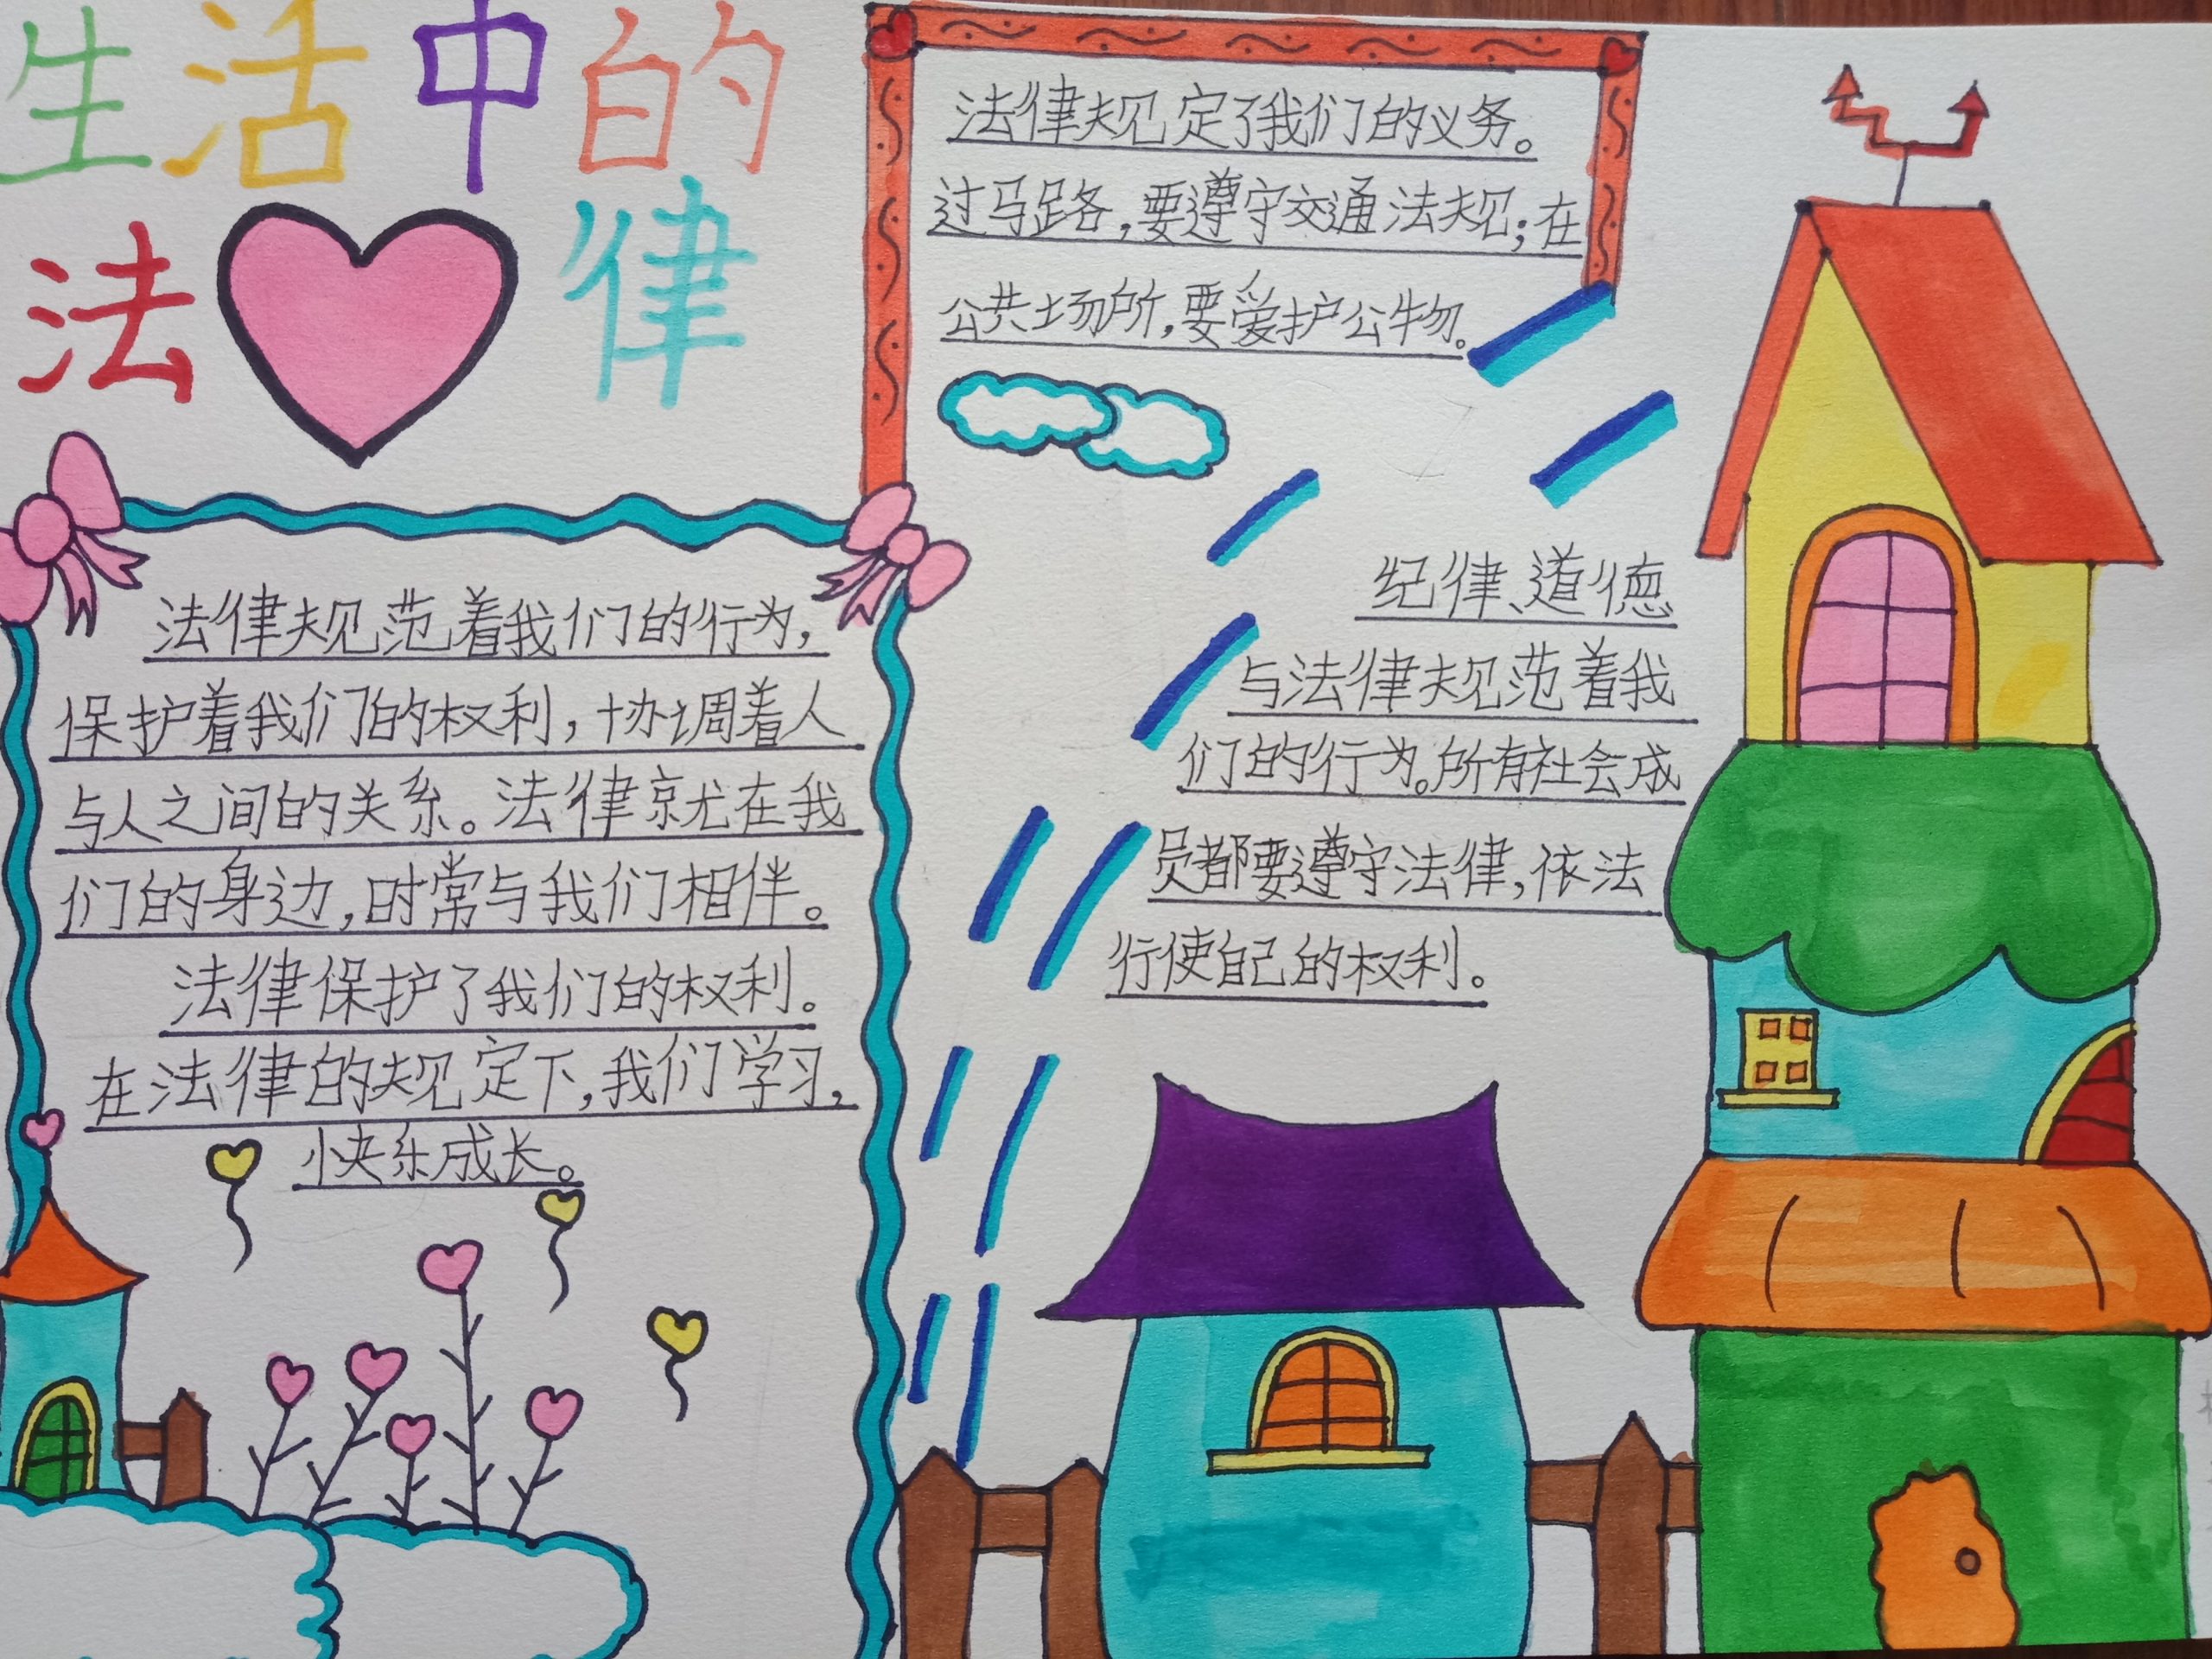 生活中的
法律
法律规范着我们的行为,
保护着我们的权利,协调着人
与人之间的关系。法律就在我
们的身边,时常与我们相伴。
法律保护了我们的权利。
在法律的规定下,我们学习,
快乐成长。
法律规定了我们的义务。
过马路,要遵守交通法规;在
公共场所,要爱护公物。
纪律、道德
与法律规范着我
们的行为。所有社会成
员都要遵守法律,依法
行使自己的权利。